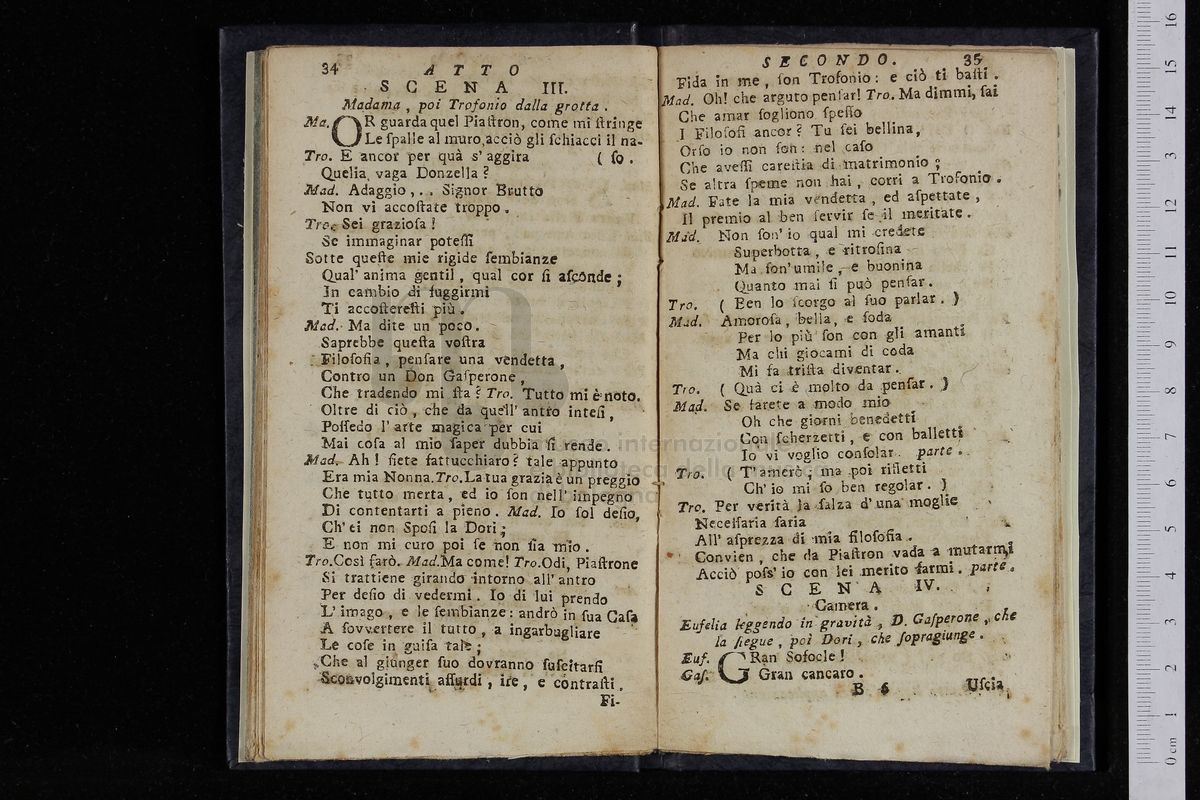 34 ATTO
SCENA III.
Madama, poi Trofonio dalla grotta.
Ma. OR guarda quel Piaſtron, come mi ſtringe
Le ſpalle al muro, acciò gli ſchiacci il na-
Tro. E ancor per quà s' aggira ( ſo.
Quella vaga Donzella?
Mad. Adaggio,.. Signor Brutto
Non vi accoſtate troppo.
Tro. Sei grazioſa!
Se immaginar poteſſi
Sotte queſte mie rigide ſembianze
Qual' anima gentil, qual cor ſi aſconde;
In cambio di fuggirmi
Ti accoſtereſti più.
Mad. Ma dite un poco.
Saprebbe queſta voſtra
Filoſofia, penſare una vendetta,
Contro un Don Gaſperone,
Che tradendo mi ſta? Tro. Tutto mi è noto.
Oltre di ciò, che da quell' antro inteſi,
Poſſedo l' arte magica per cui
Mai coſa al mio ſaper dubbia ſi rende.
Mad. Ah! ſiete fattucchiaro? tale appunto
Era mia Nonna. Tro. La tua grazia è un preggio
Che tutto merta, ed io ſon nell' impegno
Di contentarti a pieno. Mad. Io ſol deſio,
Ch' ei non Spoſi la Dori;
E non mi curo poi ſe non ſia mio.
Tro. Così farò. Mad. Ma come! Tro. Odi, Piaſtrone
Si trattiene girando intorno all' antro
Per deſio di vedermi. Io di lui prendo
L' imago, e le ſembianze: andrò in ſua Caſa
A ſovvertere il tutto, a ingarbugliare
Le coſe in guiſa tale;
Che al giunger ſuo dovranno ſuſcitarſi
Sconvolgimenti aſſurdi, ire, e contraſti.
Fi-
SECONDO. 35
Fida in me, ſon Trofonio: e ciò ti baſti.
Mad. Oh! che arguto penſar! Tro. Ma dimmi, ſai
Che amar ſogliono ſpeſſo
I Filoſofi ancor? Tu ſei bellina,
Orſo io non ſon: nel caſo
Che aveſſi careſtia di matrimonio;
Se altra ſpeme non hai, corri a Trofonio.
Mad. Fate la mia vendetta, ed aſpettate,
Il premio al ben ſervir ſe il meritate.
Mad. Non ſon' io qual mi credete
Superbotta, e ritroſina
Ma ſon' umile, e buonina
Quanto mai ſi può penſar.
Tro. ( Ben lo ſcorgo al ſuo parlar. )
Mad. Amoroſa, bella, e ſoda
Per lo più ſon con gli amanti
Ma chi giocami di coda
Mi fa triſta diventar.
Tro. ( Quà ci è molto da penſar. )
Mad. Se farete a modo mio
Oh che giorni benedetti
Con ſcherzetti, e con balletti
Io vi voglio conſolar. parte.
Tro. ( T' amerò; ma poi rifletti
Ch' io mi ſo ben regolar. )
Tro. Per verità la ſalza d' una moglie
Neceſſaria ſaria
All' aſprezza di mia filoſofia.
Convien, che da Piaſtron vada a mutarmi
Acciò poſs' io con lei merito farmi. parte.
SCENA IV.
Camera.
Eufelia leggendo in gravità, D. Gaſperone, che
la ſiegue, poi Dori, che ſopragiunge.
Euf. GRan Sofocle!
Gaſ. Gran cancaro.
B 6 Uſcia